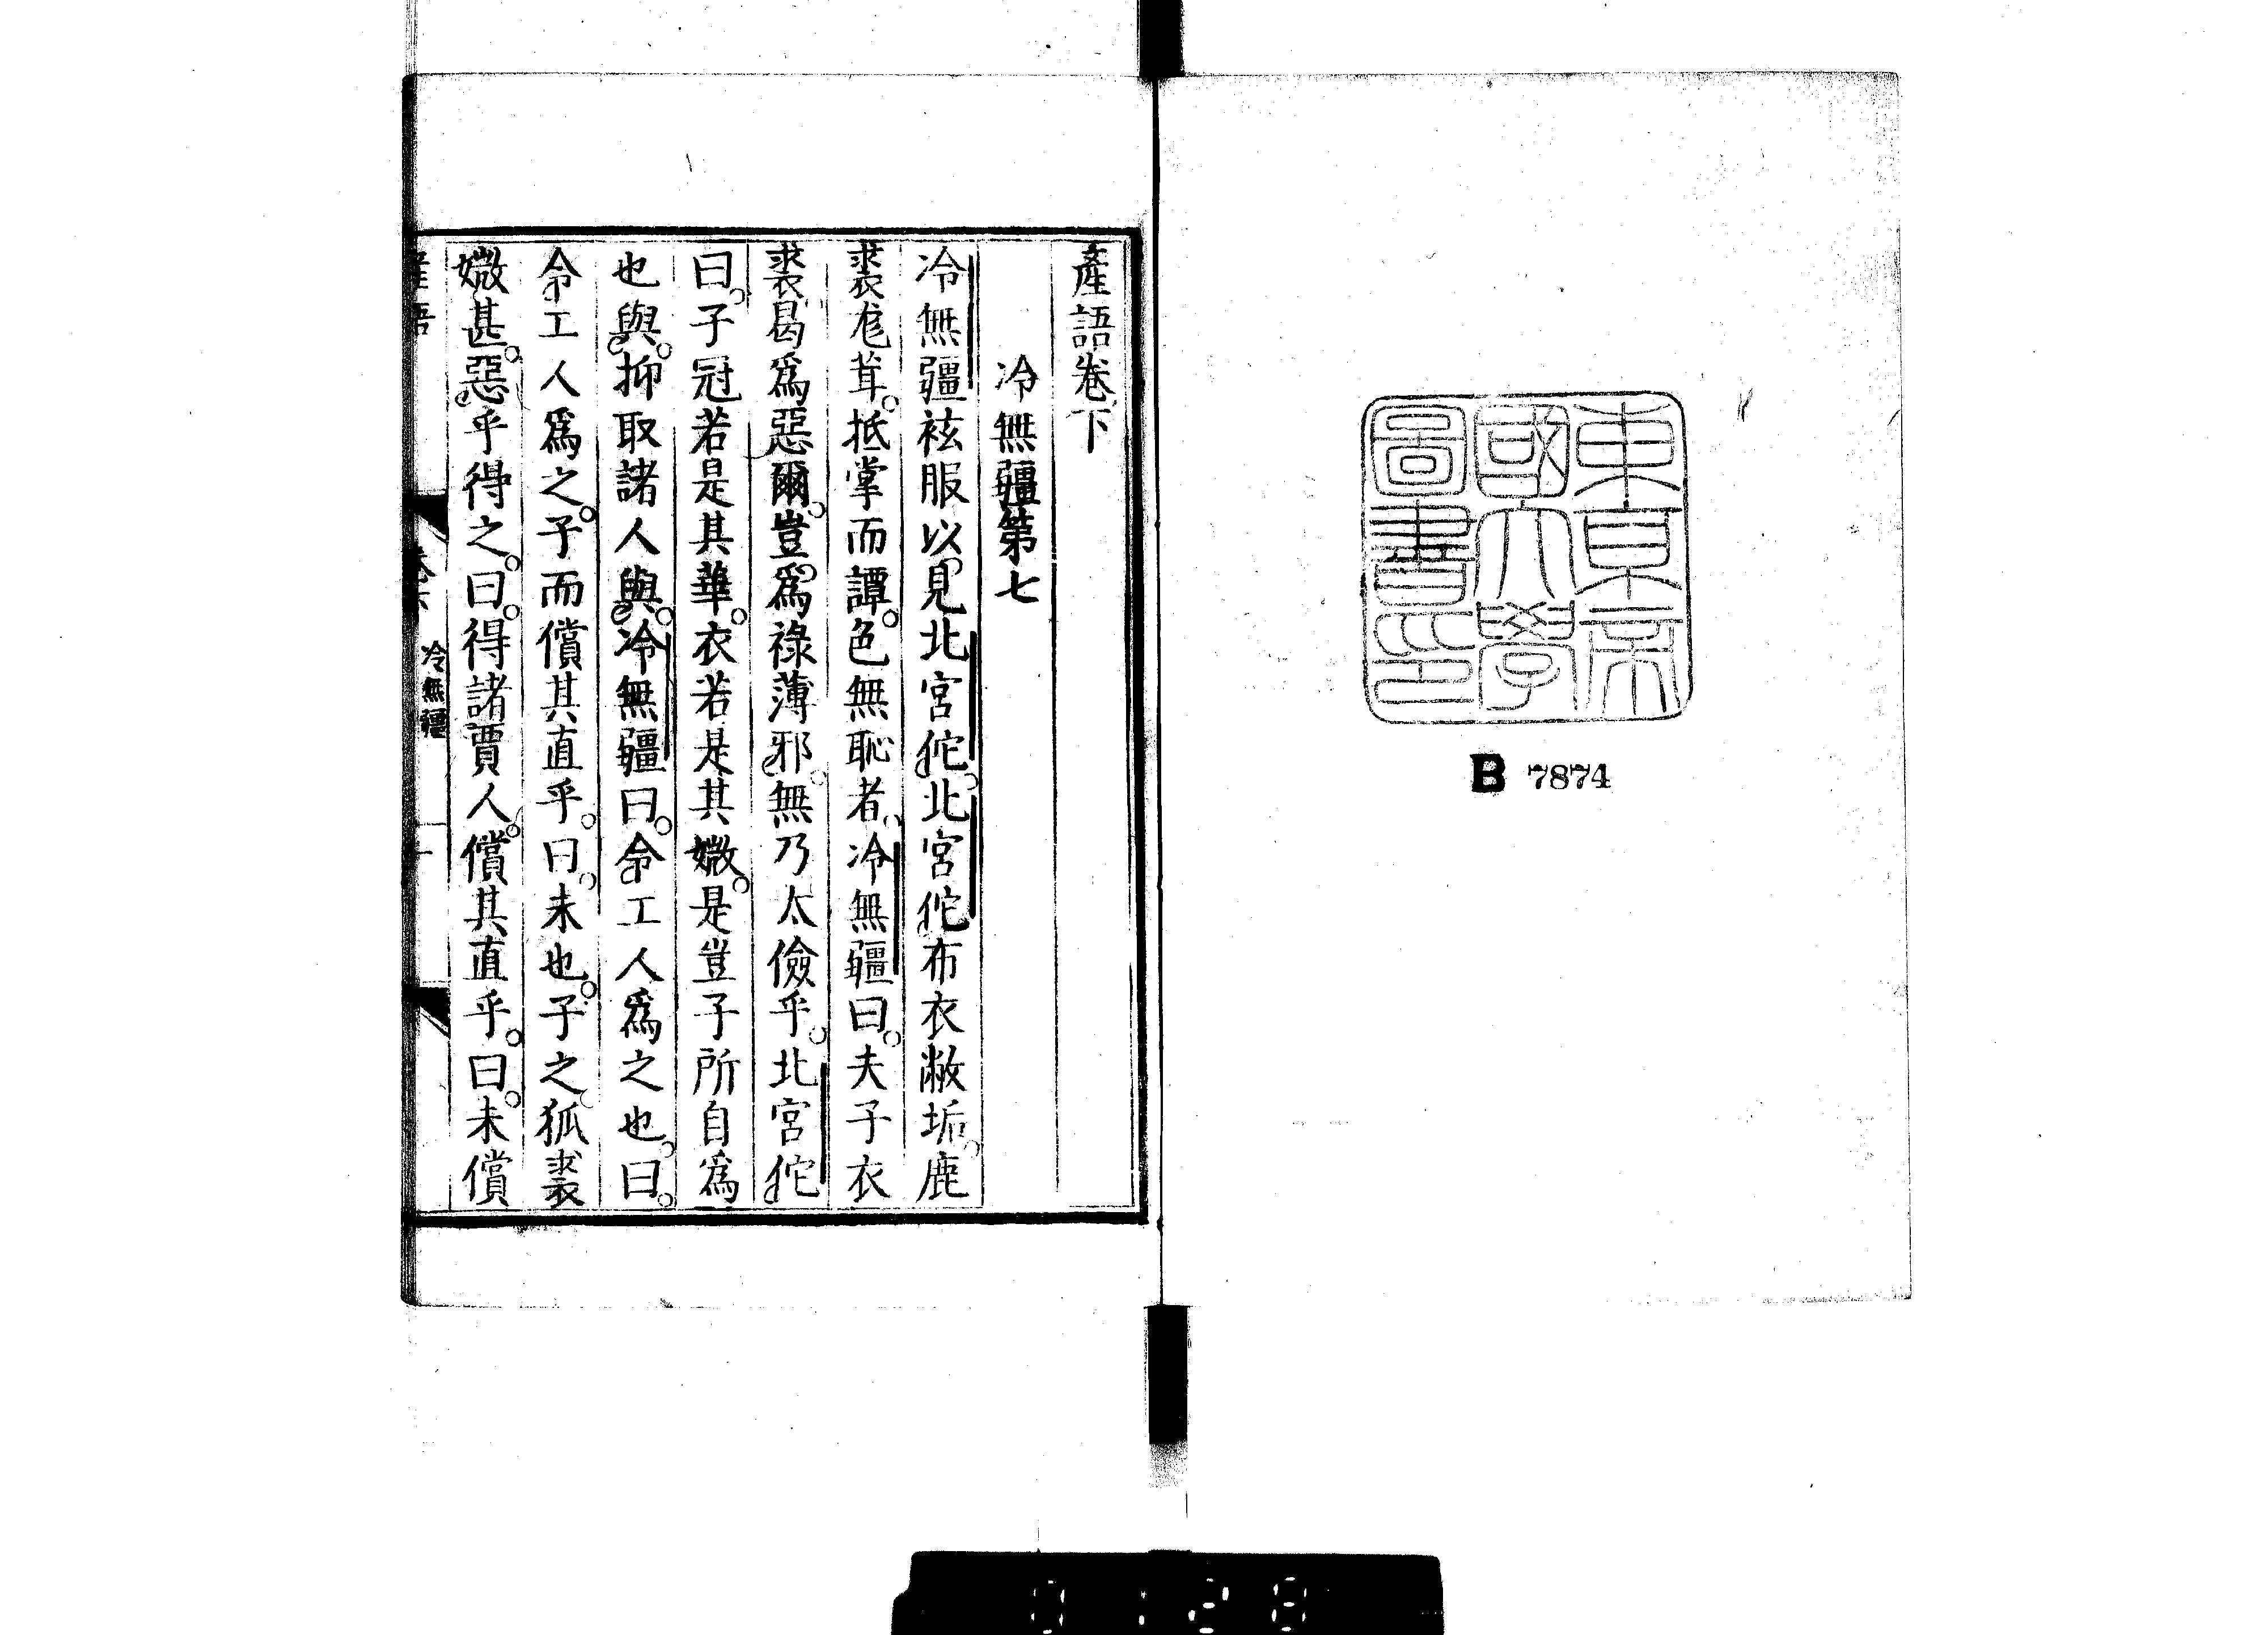 東京帝
國大學
圖書印
B 7874
產語卷下
冷無疆第七
冷無疆袨服以見北宮佗。北宮佗布衣敝垢。鹿
裘尨茸。抵掌而譚。色無恥者。冷無疆曰。夫子衣
裘曷爲惡爾。豈爲祿薄邪。無乃太儉乎。北宮佗
曰。子冠若是其華。衣若是其媺。是豈子所自爲
也與。抑取諸人與。冷無疆曰。令工人爲之也。曰。
令工人爲之。子而償其直乎。曰。未也。子之狐裘
媺甚。惡乎得之。曰。得諸賈人。償其直乎。曰。未償
產語 卷下 冷無疆 一
0128